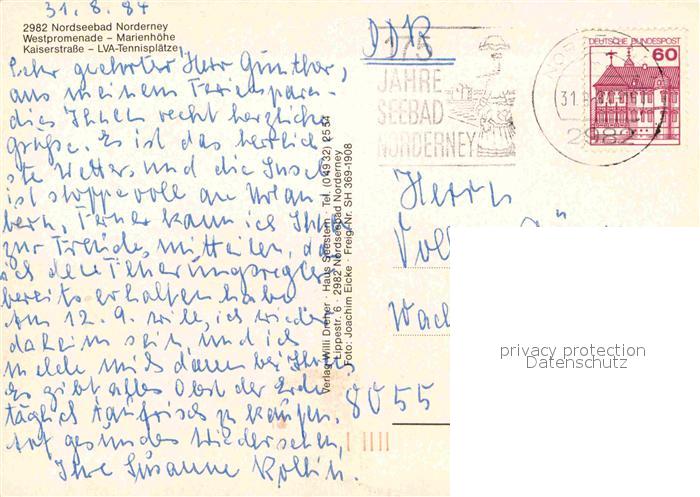 31. 8. 84
2982 Nordseebad Norderney
Westpromenade – Marienhöhe
Kaiserstraße – LVA-Tennisplätze
Sehr geehrter Herr Günther,
aus meinem Ferienpara-
dies Ihnen recht herzliche
Grüße. Es ist das herrlich-
ste Wetter und die Insel
ist stoppevoll an Urlau
bern, Ferner kann ich Ihnen
zur Freude, mitteilen, da
ich den
bereits erhalten habe
Am 12. 9. will, ich wieder
daheim sein und ich
melde mich dann bei Ihnen
Es gibt alles Obst der Erde
täglich frisch zu kaufen.
Auf gesundes Wiedersehen,
Ihre Susanne
Verlag Willi Dreher · Haus Seestern · Tel. (0 49 32) 25 54
Lippestr. 6 · 2982 Nordseebad Norderney
Foto: Joachim Eicke · Freig. Nr. SH 369-1908
DDR
JAHRE
SEEBAD
NORDERNEY
2982
DEUTSCHE BUNDESPOST
60
Herrn
8055
privacy protection
Datenschutz